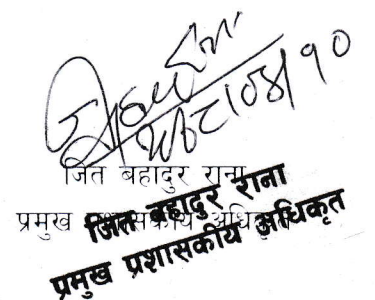 २०८१/०४/१०
जित बहादुर राना
प्रमुख प्रशासकीय अधिकृत
जित बहादुर राना
प्रमुख प्रशासकीय अधिकृत